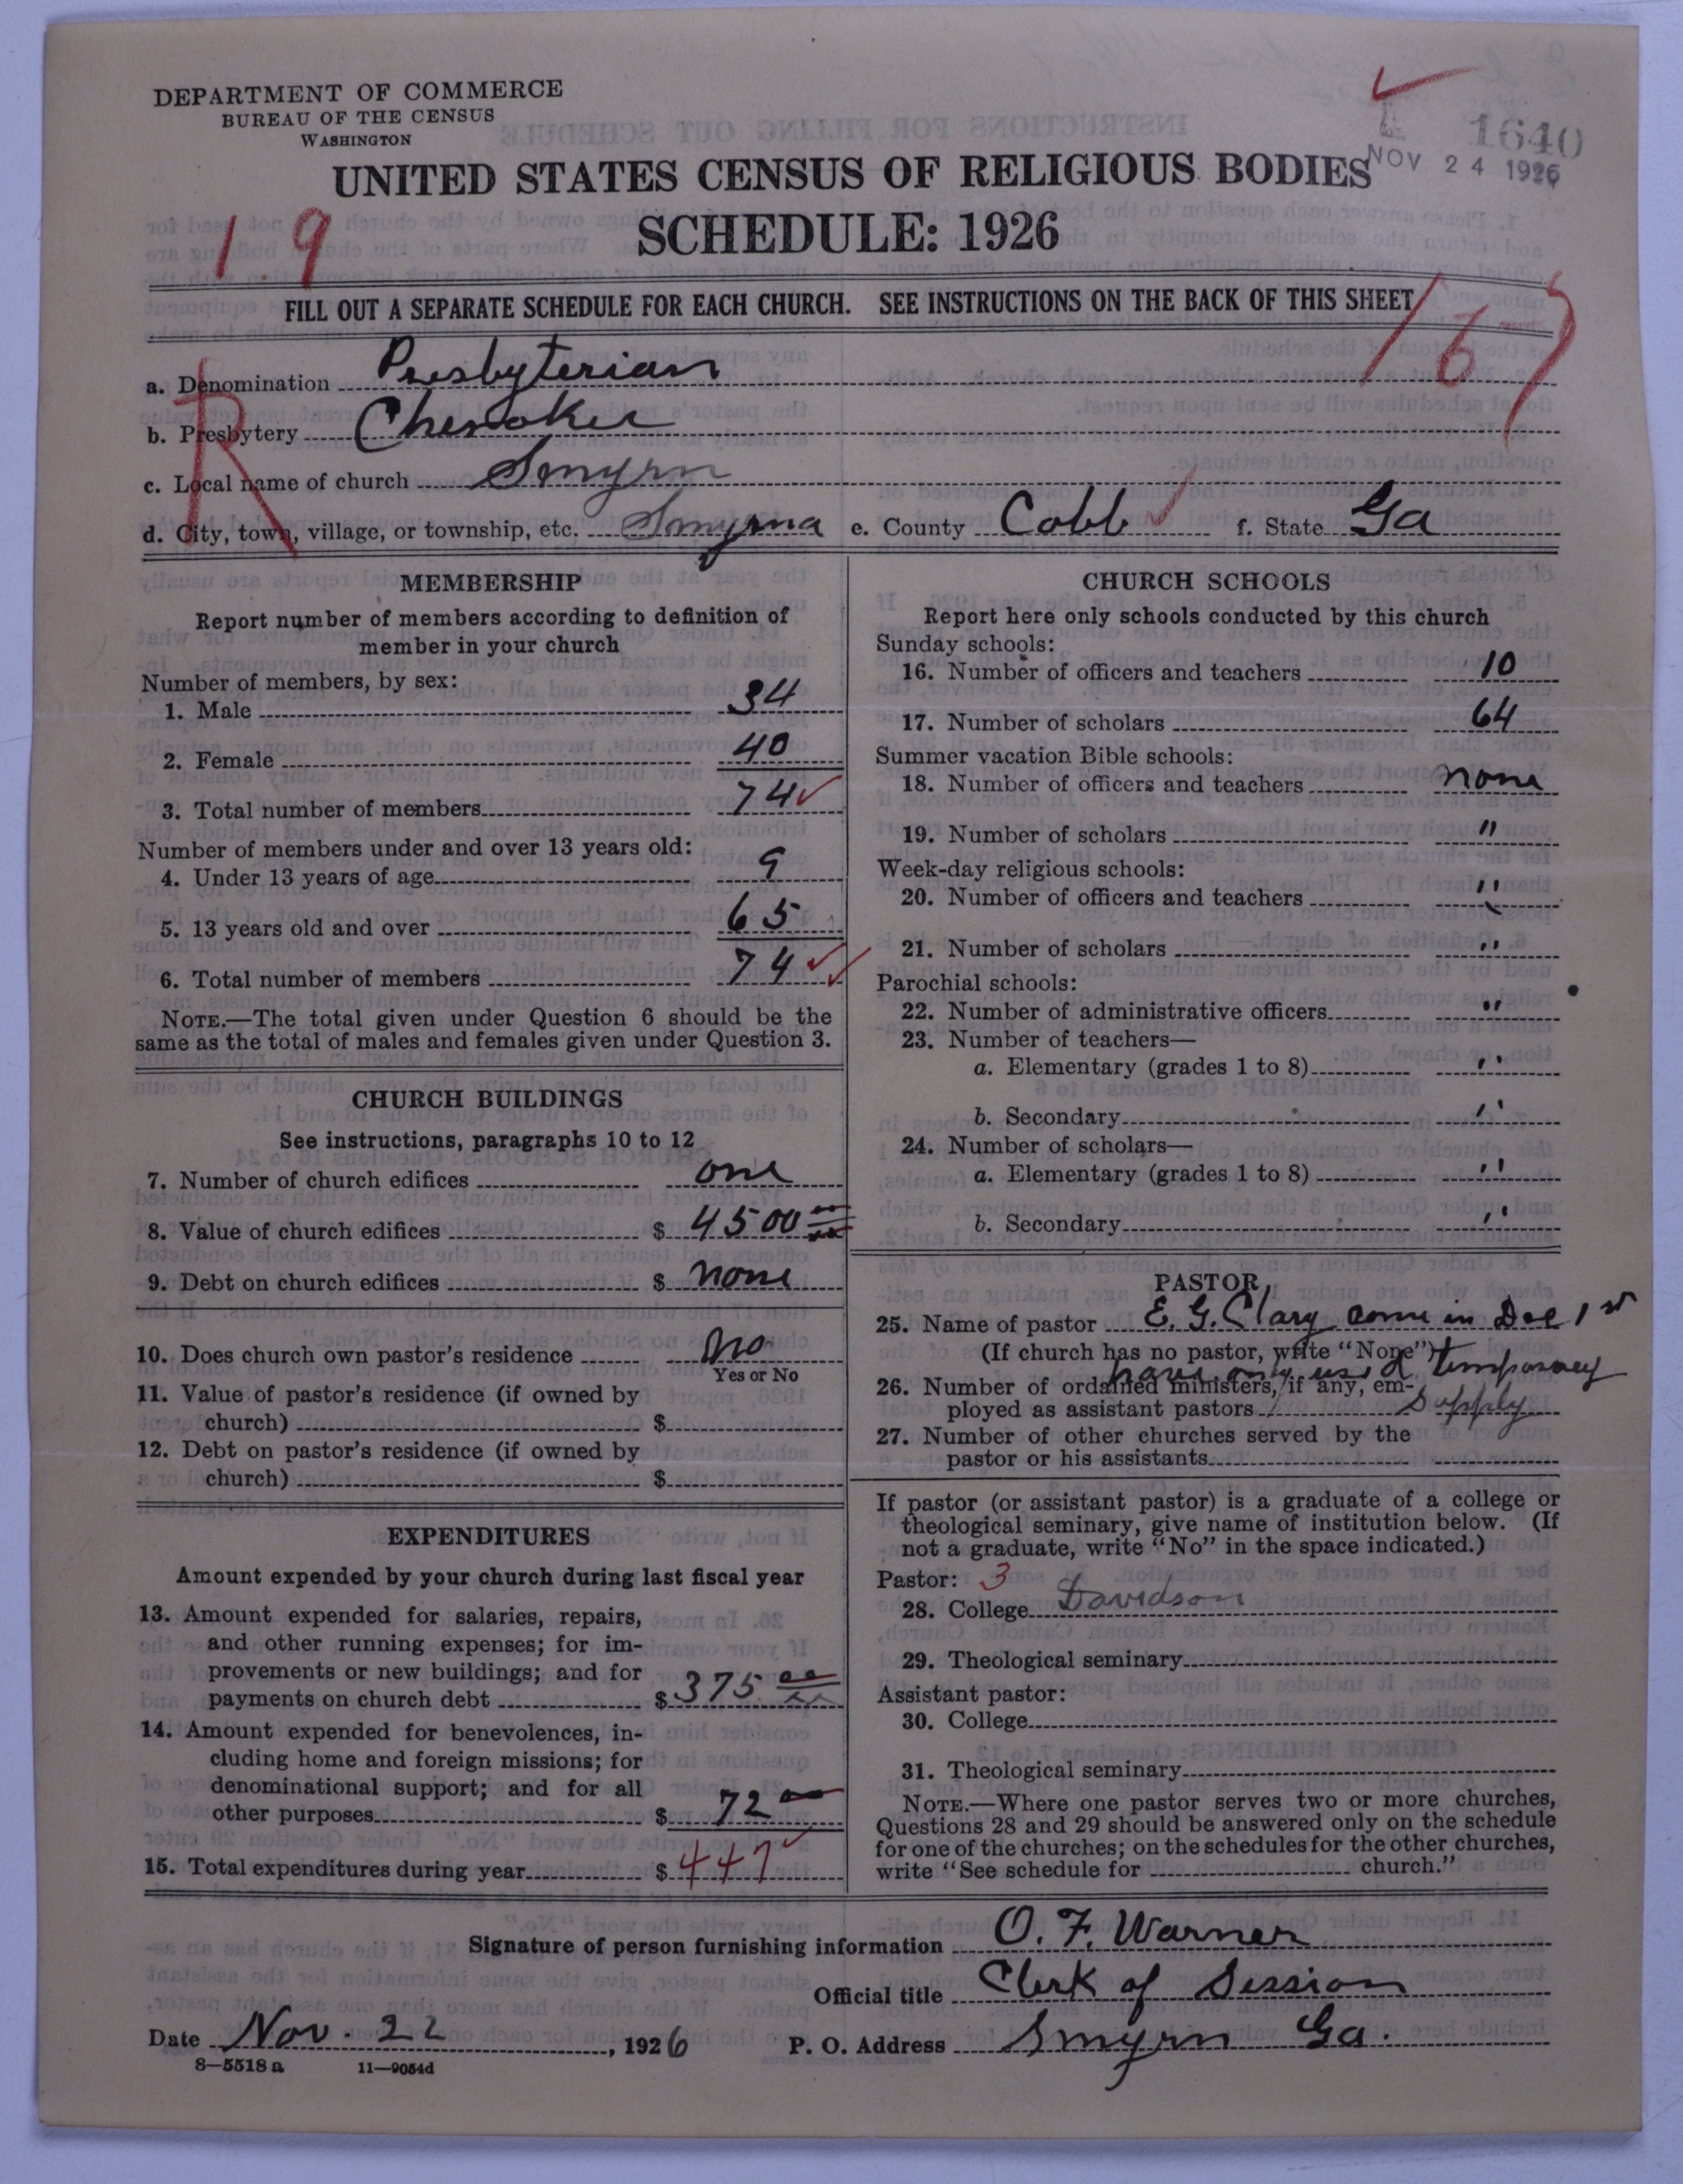 DEPARTMENT OF COMMERCE
BUREAU OF THE CENSUS
WASHINGTON
1640
NOV 24 1926
UNITED STATES CENSUS OF RELIGIOUS BODIES
SCHEDULE: 1926
19
FILL OUT A SEPARATE SCHEDULE FOR EACH CHURCH. SEE INSTRUCTIONS ON THE BACK OF THIS SHEET
167
R
a. Denomination Presbyterian
b. Presbytery Cherokee
c. Local name of church Smyrn
d. City, town, village, or township, etc. Smyrna e. County Cobb f. State Ga
MEMBERSHIP
Report number of members according to definition of
member in your church
Number of members, by sex:
1. Male 34
2. Female 40
3. Total number of members 74
Number of members under and over 13 years old:
4. Under 13 years of age 9
5. 13 years old and over 65
6. Total number of members 74
NOTE.—The total given under Question 6 should be the
same as the total of males and females given under Question 3.
CHURCH BUILDINGS
See instructions, paragraphs 10 to 12
7. Number of church edifices one
8. Value of church edifices $ 4500
9. Debt on church edifices $ none
10. Does church own pastor's residence no
Yes or No
11. Value of pastor's residence (if owned by
church) $
12. Debt on pastor's residence (if owned by
church) $
EXPENDITURES
Amount expended by your church during last fiscal year
13. Amount expended for salaries, repairs,
and other running expenses; for im-
provements or new buildings; and for
payments on church debt $ 375 00
14. Amount expended for benevolences, in-
cluding home and foreign missions; for
denominational support; and for all
other purposes $ 72
15. Total expenditures during year $ 447
CHURCH SCHOOLS
Report here only schools conducted by this church
Sunday schools:
16. Number of officers and teachers 10
17. Number of scholars 64
Summer vacation Bible schools:
18. Number of officers and teachers none
19. Number of scholars "
Week-day religious schools:
20. Number of officers and teachers "
21. Number of scholars "
Parochial schools:
22. Number of administrative officers "
23. Number of teachers—
a. Elementary (grades 1 to 8) "
b. Secondary "
24. Number of scholars—
a. Elementary (grades 1 to 8) "
b. Secondary "
PASTOR
25. Name of pastor E. G. Clary come in Dec 1st
(If church has no pastor, write "None")
have only used temporary
26. Number of ordained ministers, if any, em-
ployed as assistant pastors supply
27. Number of other churches served by the
pastor or his assistants
If pastor (or assistant pastor) is a graduate of a college or
theological seminary, give name of institution below. (If
not a graduate, write "No" in the space indicated.)
Pastor: 3
28. College Davidson
29. Theological seminary
Assistant pastor:
30. College
31. Theological seminary
NOTE.—Where one pastor serves two or more churches,
Questions 28 and 29 should be answered only on the schedule
for one of the churches; on the schedules for the other churches,
write "See schedule for church."
Signature of person furnishing information O. F. Warner
Official title Clerk of Session
Date Nov. 22, 1926 P. O. Address Smyrn Ga.
8—5518 a 11—9054d